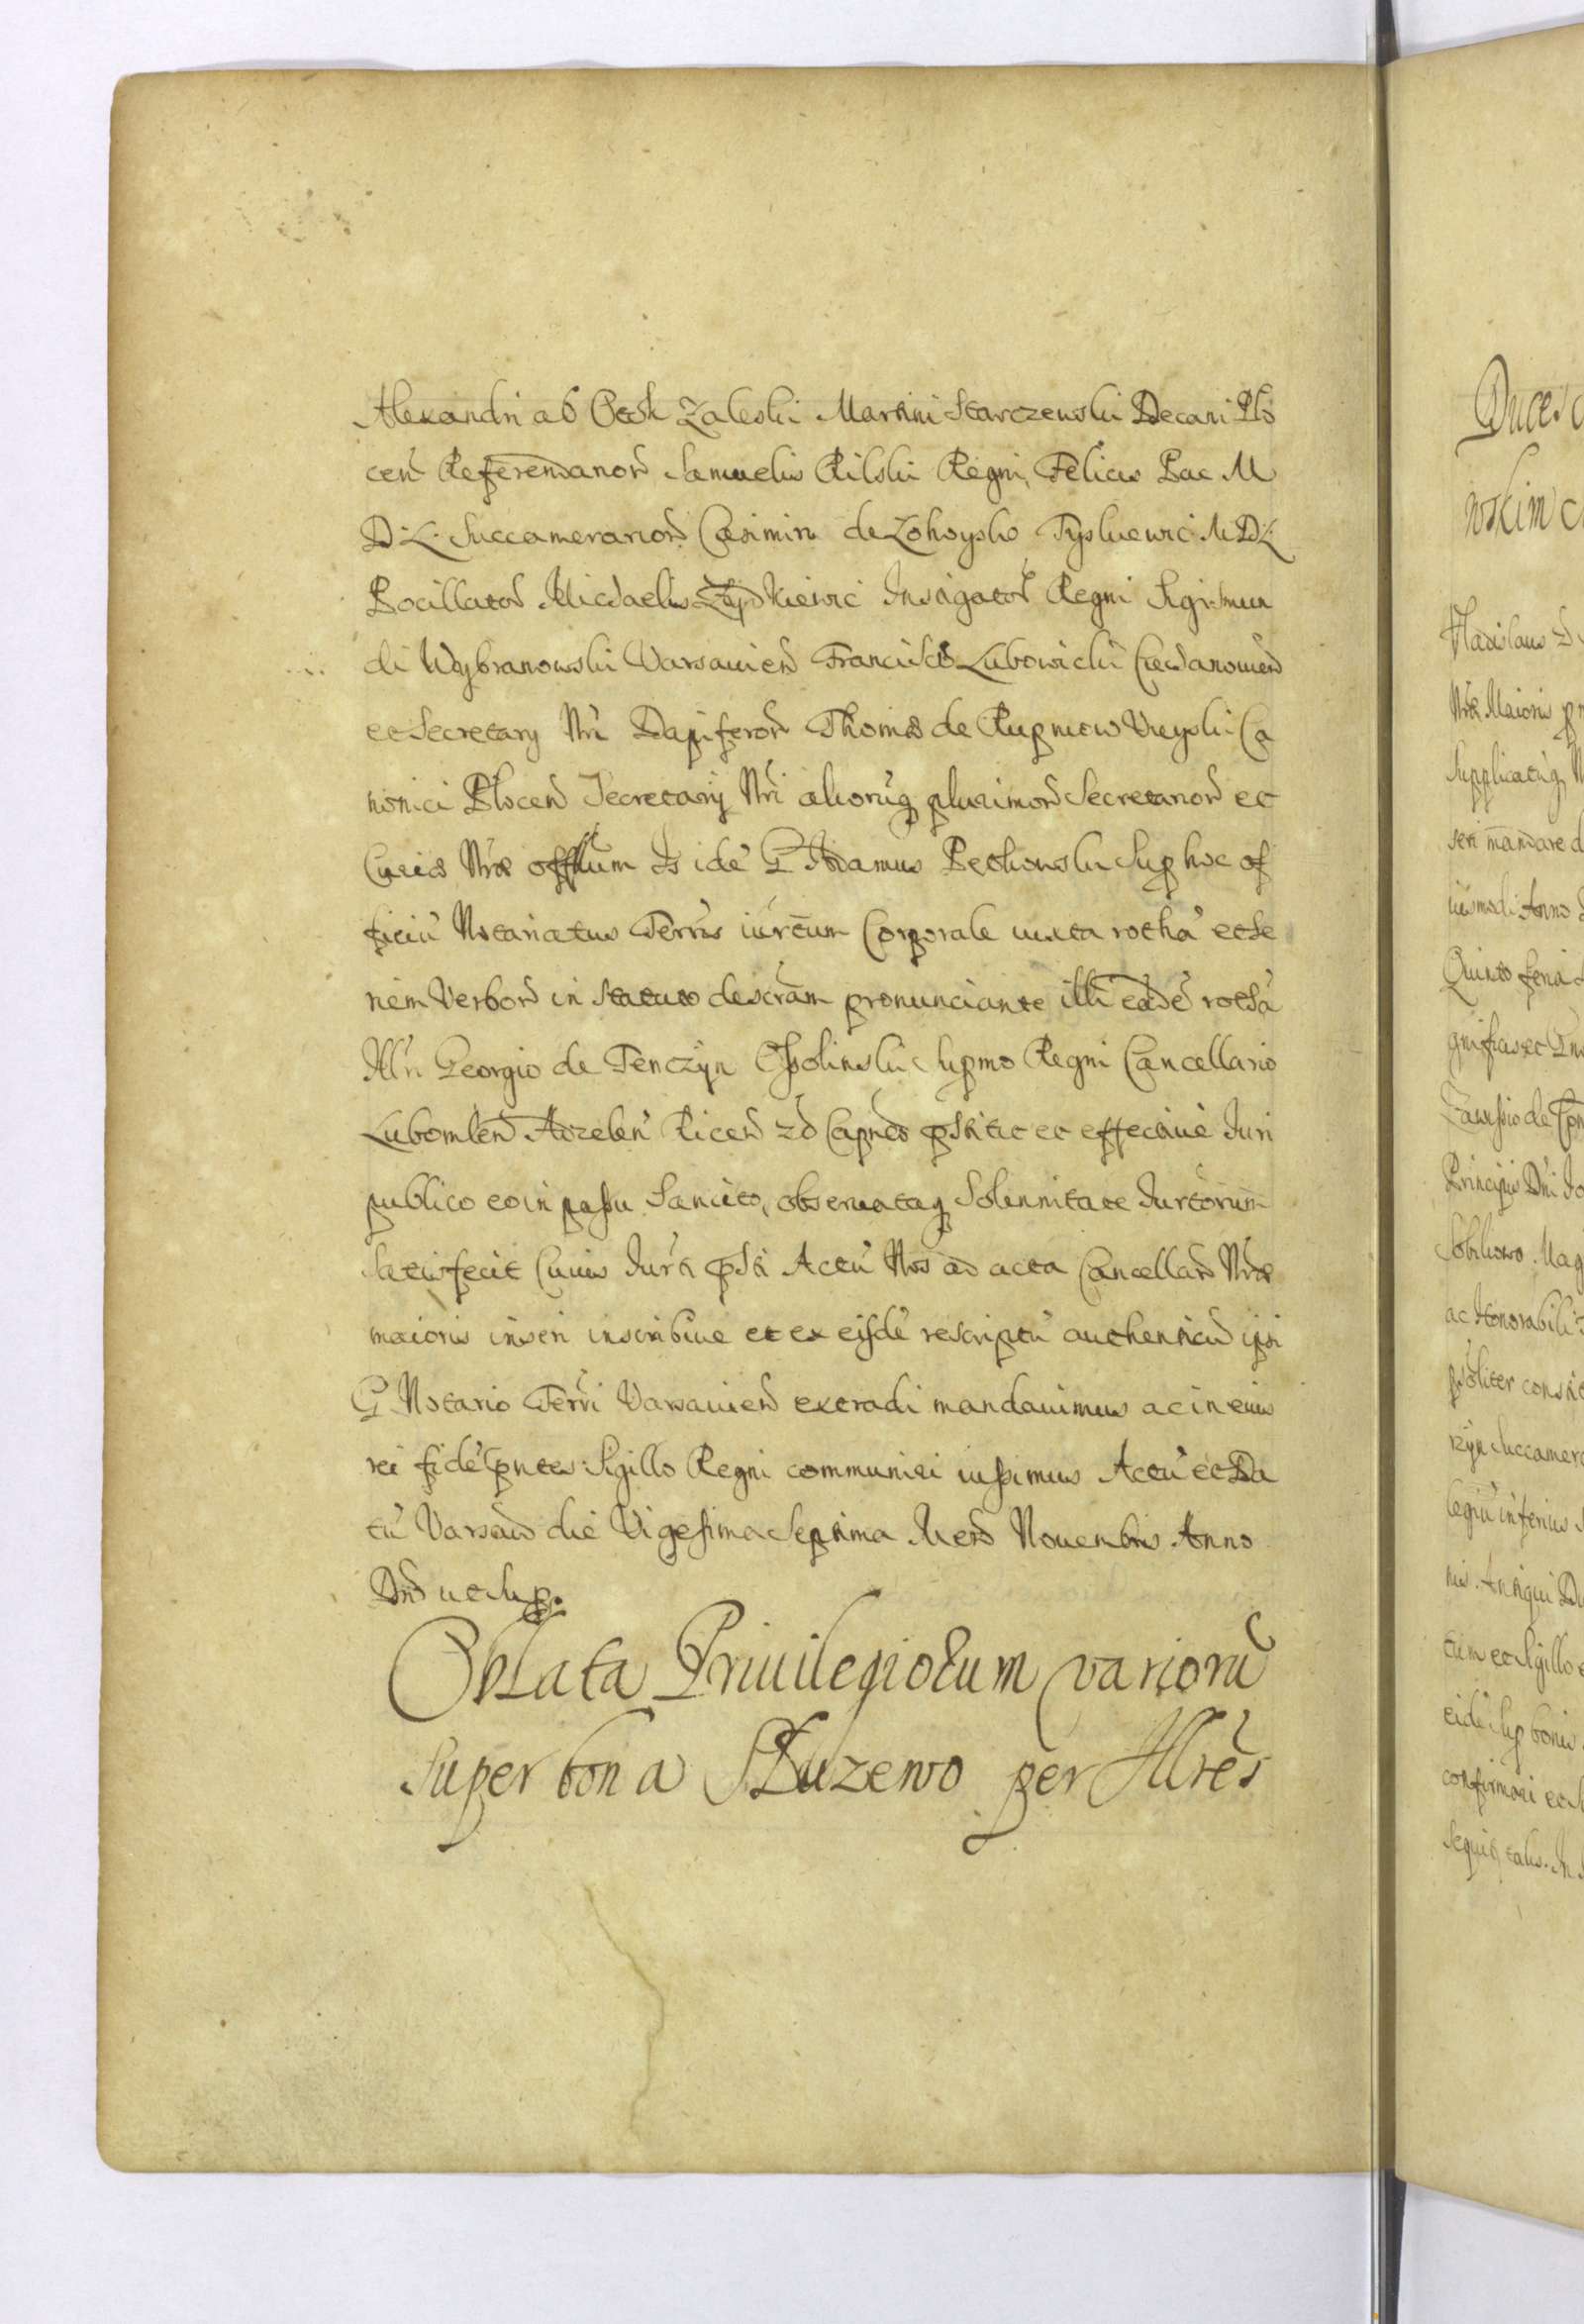 Alexandri ab Ottok Zaleski Martini Starczewski Decani Plo
cen Referendarior Samuelis Kilski Regni, Felicis Pac M
D: L. Succamerarior Casimiri de Lohoysko Tyskiewic M D: L
Pocillator Michaelis Instigator Regni Sigismun
di Wybranowski Varsavien Francisci Lubowicki Ciechanovien
et Secretary Nri Dapiferor Thomæ de Rupniew Vieyski Ca
nonici Plocen Secretarij Nri aliorūq plurimor Secretarior et
Curiæ Nræ offlium Is idē G Adamus Petkowski Sup hoc of
ficiū Notariatus Terris iurtum Corporale iuxta rothā et Se
riem Verbor in Statuto descram pronunciante illi eādē rothā
Illri Georgio de Tenczyn Ossolinski Supmo Regni Cancellario
Lubomlen Adzelen Ricen zc Capneo pstitit et effective Iuri
publico eo in passu Sancito, observataq Solennitate Iurtorum
Satisfecit Cuius Iurti psti Actū Nos ad acta Cancellar Nræ
maioris inseri inscribive et ex eisdē rescriptū authenticū ipsi
G Notario Terri Varsavien extradi mandavimus ac in eius
rei fidē pntes Sigillo Regni communiri iussimus Actū et Da
tū Varsav die Vigesima Septima Mens Novembris Anno
Dni ut Sup.
Oblata Privilegiorum variorū
Super bona Służewo per Illres
Duces
wskim
Vladislaus D
Nræ Maioris
Supplicatūq N
seri mandare
iusmodi Anno
Quinto feria
gnificus et
de
Principis Dni Jo
Sobikowo. Mag
ac Honorabili
psoliter
czyn Succamer
legiū inferius
nis. Antiqui Du
tum et Sigillo
eidē Sup bonis
confirmari et
Sequit talis. In